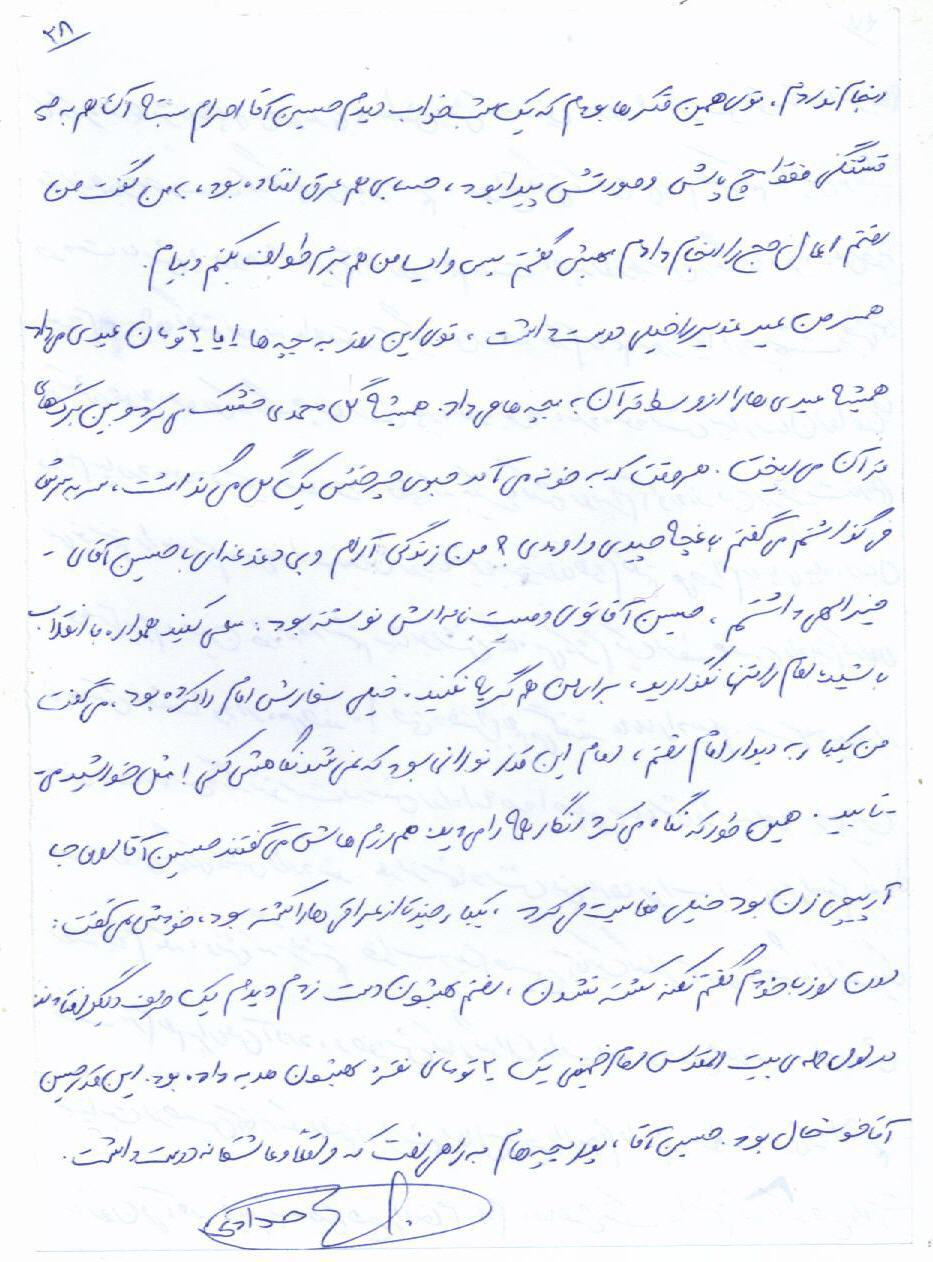 ۳۸
انجام نوردم. توی همین فکرها بودم که یک شب خواب دیدم حسین آقا احرام بسته آن هم به چه
قشنگی فقط مچ پاش و صورتش پیدا بود، حسابی هم عرق افتاده بود، به من گفت من
رفتم اعمال حج را انجام دادم بهش گفتم پس وایسا من هم برم طواف بکنم و بیام.
همسر من عید غدیر را خیلی دوست داشت، توی این روز به بچه ها ۱ یا ۲ تومان عیدی می داد
همیشه عیدی ها را از وسط قرآن به بچه ها می داد. همیشه گل محمدی خشک می کرد و بین برگ های
قرآن می ریخت. هر وقت که به خونه می آمد جلوی چرخش یک گل می گذاشت، سر به سرش
می گذاشتم می گفتم باغچه چیدی و اومدی؟ من زندگی آرام و بی دغدغه ای با حسین آقای
خیرالهی داشتم، حسین آقا توی وصیت نامه اش نوشته بود: سعی کنید همواره با انقلاب
باشید، امام را تنها نگذارید، برای من هم گریه نکنید. خیلی سفارش امام را کرده بود، می گفت
من یکبار به دیدار امام رفتم، امام این قدر نورانی بود که نمی شد نگاهش کنی! مثل خورشید می
تابید. همین طور که نگاه می کرد انگار ما را می دید. هم رزم هایش می گفتند حسین آقا اون جا
آرپیچی زن بود خیلی فعالیت می کرد، یکبار چند تا از عراقی ها را کشته بود، خودش می گفت:
اون روز با خودم گفتم نکنه کشته نشدن، رفتم بهشون دست زدم دیدم یک طرف دیگر افتادند
در اول حمله ی بیت المقدس امام خمینی یک ۲ تومانی نقره بهشون هدیه داده بود. این قدر حسین
آقا خوشحال بود. حسین آقا، پدر بچه هام به راهی رفت که واقعاً و عاشقانه دوست داشت.